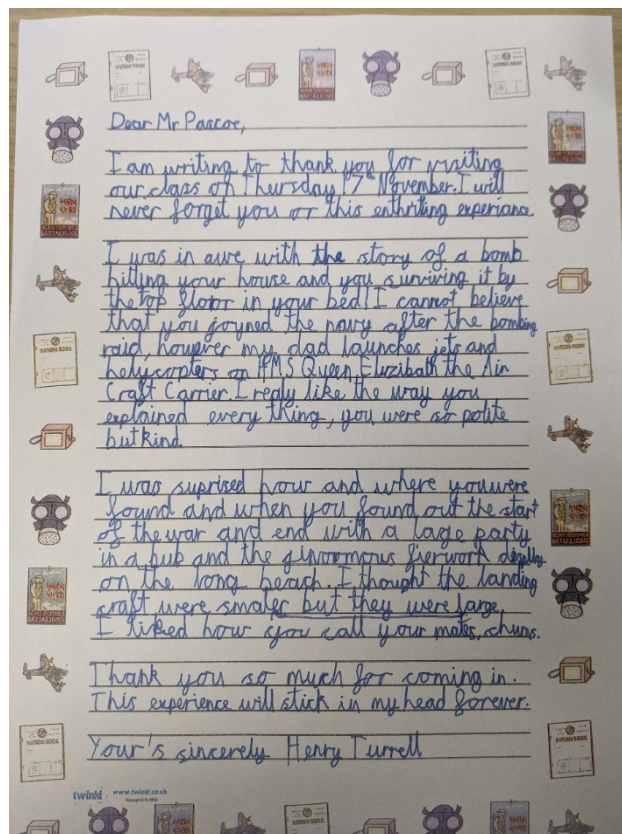 Dear Mr Pascoe,
I am writing to thank you for visiting
our class on Thursday 17th November. I will
never forget you or this enthriting experiance
I was in awe with the story of a bomb
hitting your house and you surviving it by
the top floor in your bed! I cannot believe
that you joyned the navy after the bombing
raid, however my dad launches jets and
helycopters on HMS Queen Eluzibath the Air
Craft Carrier. I reply like the way you
explained every thing, you were so polite
but kind.
I was suprised how and where you were
found and when you found out the start
of the war and end with a lage party
in a pub and the ginormous fierwork display
on the long beach. I thought the landing
craft were smaler but they were large.
I liked how you call your mates, chums.
Thank you so much for coming in.
This experience will stick in my head forever.
Your's sincerely Henry Turrell
twinkl www.twinkl.co.uk
RATION BOOK
RATION BOOK
RATION BOOK
RATION BOOK
RATION BOOK
RATION BOOK